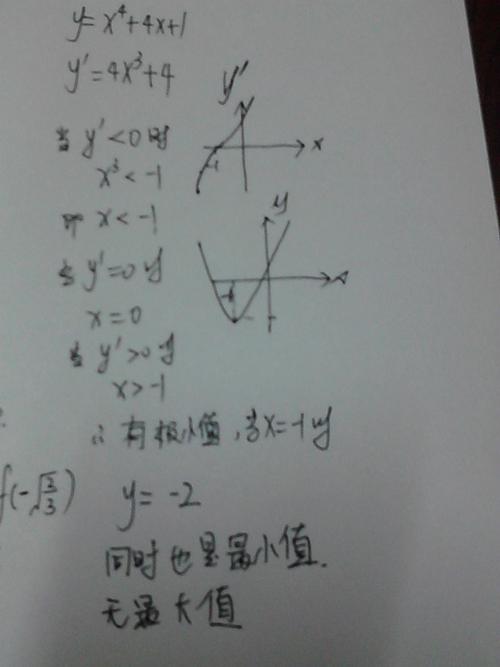 y=x⁴+4x+1
y'=4x³+4
y'
当 y'<0时
x
-1
x³<-1
即 x<-1
y
当 y'=0时
x
-1
x=0
当 y'>0时
x>-1
∴有极小值,当x=-1时
f(-√
y=-2
同时也是最小值.
无最大值